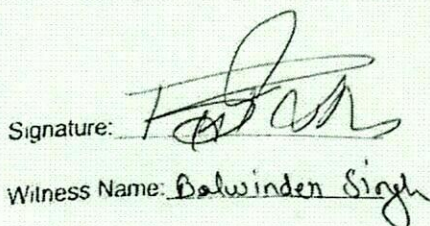 Signature:
Witness Name: Balwinder Singh